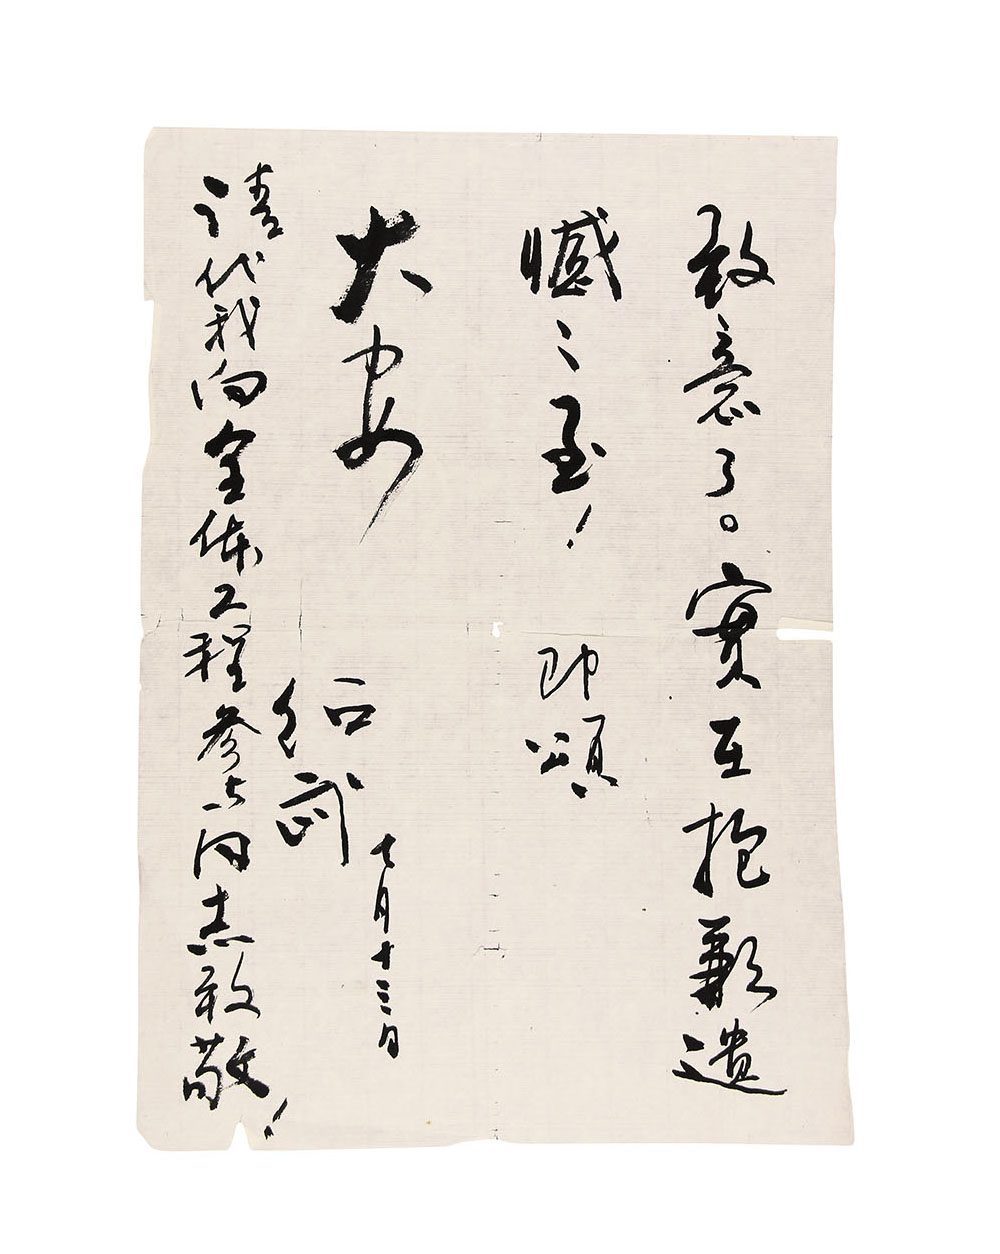 致意了。實在抱歉遺
憾之至！即頌
大安
绍武
七月十三日
请代我向全体工程参与同志致敬！